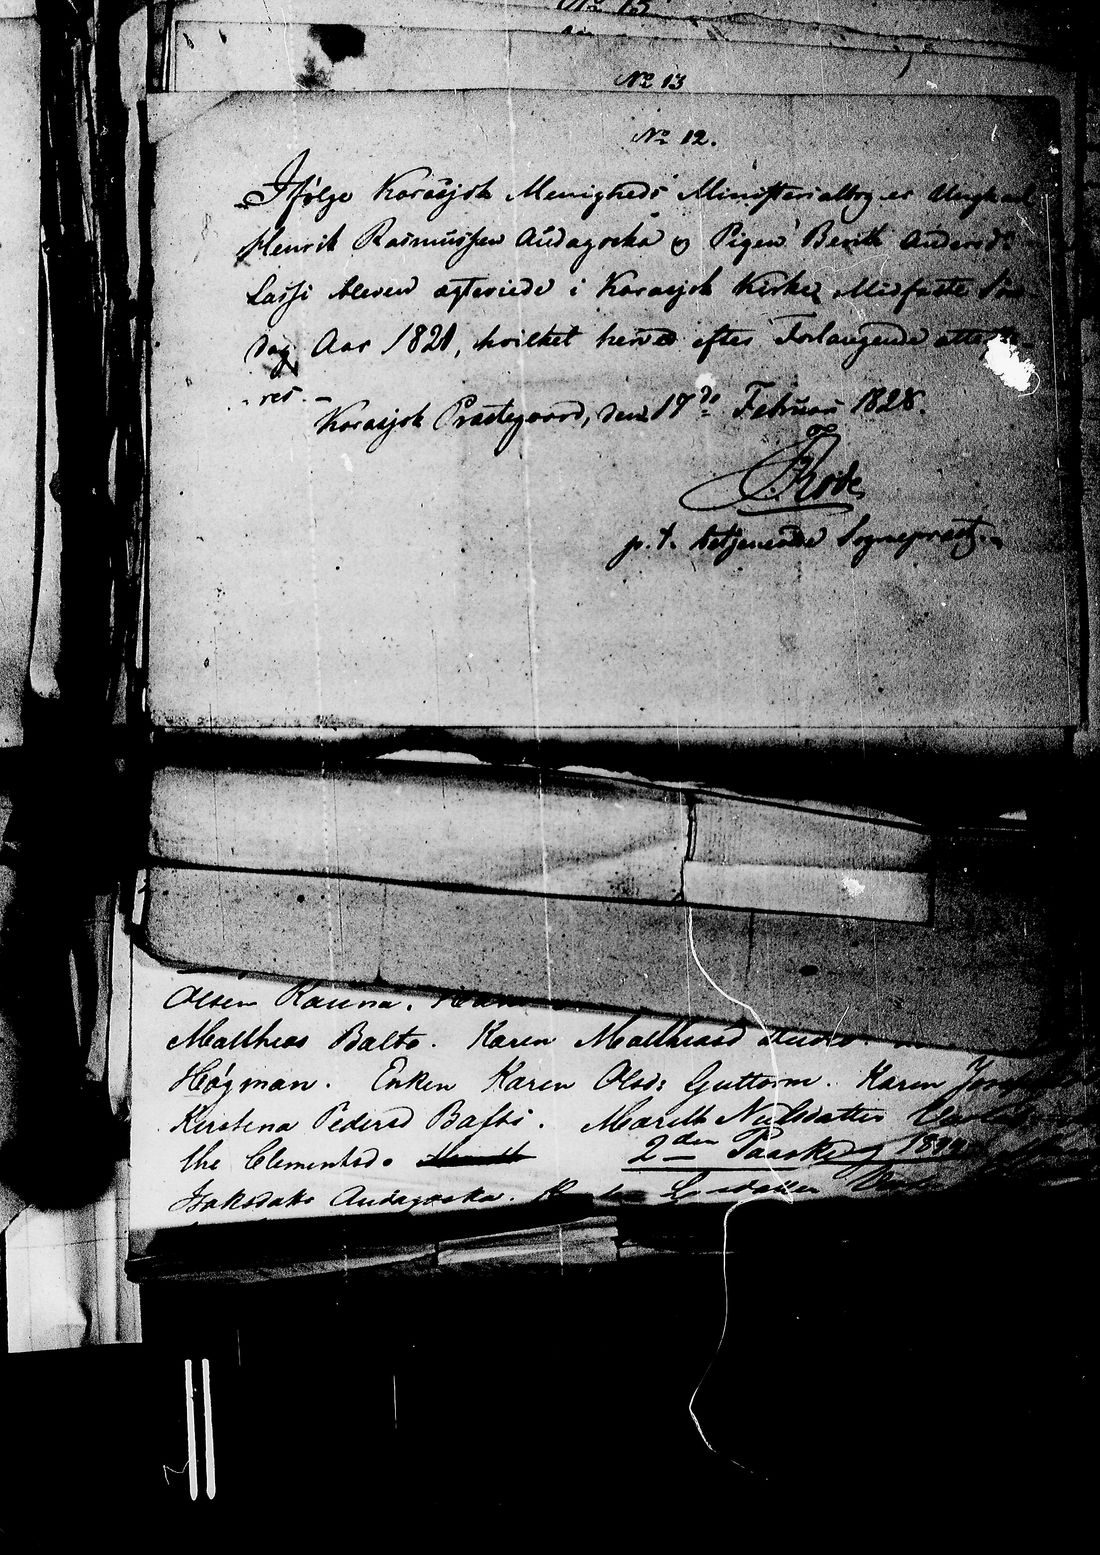 No 15
No 13
No 12.
Ifølge Karasjok Menigheds Ministerialbog er Ungkarl
Henrik Rasmussen Audagoska og Pigen Berith Andersd:
Lassi bleven ægteviede i Karasjok Kirke, Midfaste Søn-
dag Aar 1821, hvilket herved efter Forlangende atteste-
res.-
Karasjok Præstegaard, den 17de Februar 1828.
Rode
p. t. betjenende Sognepræst.
Olsen Rauna.
Matthias Balto. Karen Matthiasd
Høgman. Enken Karen Olsd: Guttorm. Karen Josephs
Kirstena Pedersd Balto. Mareth Nielsdatter
the Clementsd.
2den Paaskedag
Isaksdatr Audagoska.